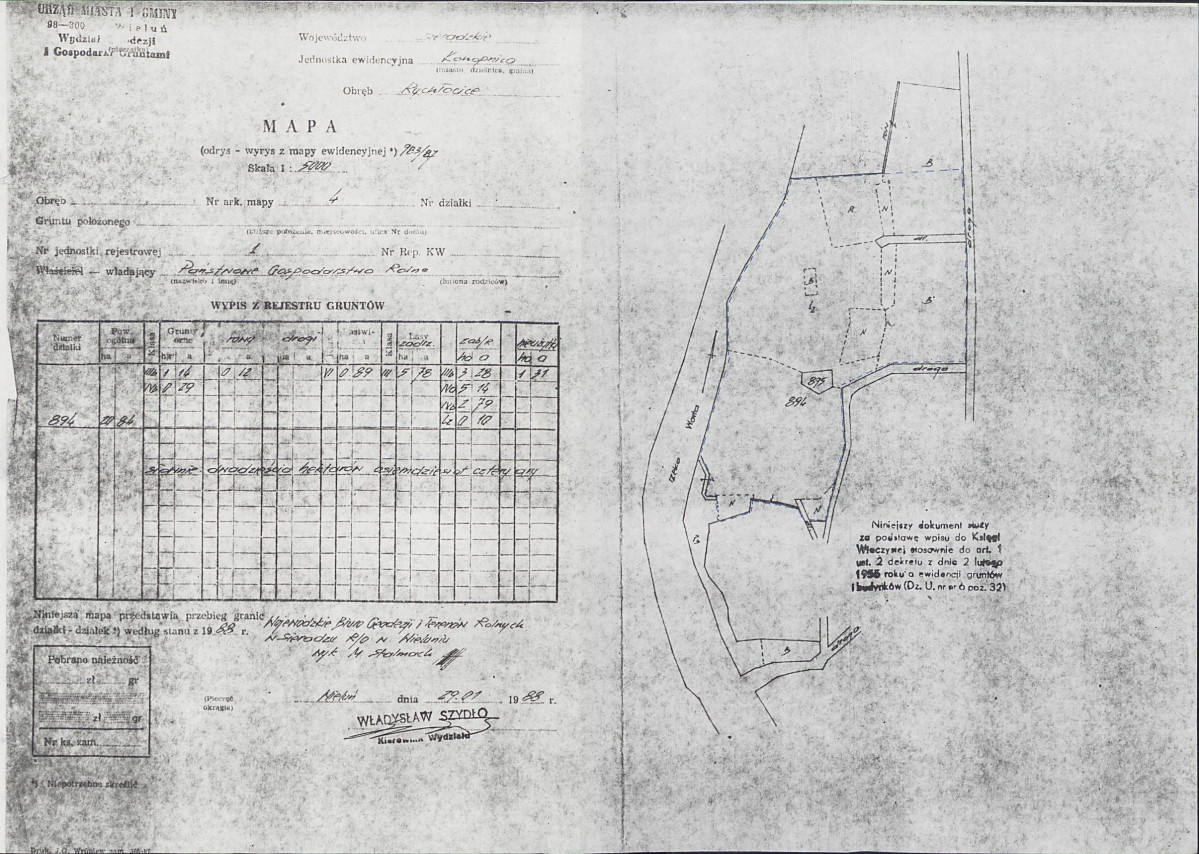 URZĄD MIASTA I GMINY
98-300 Wieluń
Wydział
(pieczątka)
i Gospodarki Gruntami
Województwo sieradzkie
Jednostka ewidencyjna Konopnica
(miasto, dzielnica, gmina)
Obręb Rychłocice
MAPA
(odrys - wyrys z mapy ewidencyjnej *) 983/87
Skala 1 : 5000
Obręb
Nr ark. mapy 4
Nr działki
Gruntu położonego
(bliższe położenie, miejscowości, ulica Nr domu)
Nr jednostki rejestrowej 1
Nr Rep. KW
Właściciel — władający Państwowe Gospodarstwo Rolne
(nazwisko i imię)
(imiona rodziców)
WYPIS Z REJESTRU GRUNTÓW
Numer działki
Pow. ogólna
Klasa
Grunty orne
rowy
drogi
Klasa
Lasy
zadrz.
zab/R
nieużytki
ha a
IIIb 1 14 0 12 VI 0 89 III 5 78 IIIb 3 28 1 31
IVa 0 29 IVa 5 14
IVb 1 79
894 20 84 Lz 0 10
słownie: dwadzieścia hektarów osiemdziesiąt cztery ary
Niniejsza mapa przedstawia przebieg granic
działki - działek *) według stanu z 1988 r.
Wojewódzkie Biuro Geodezji i Terenów Rolnych
w Sieradzu R/O w Wieluniu
Wyk. M Stolmach
Pobrano należność
zł gr
zł gr
Nr ks. zam.
(Pieczęć okrągła)
Wieluń dnia 29.01 1988 r.
WŁADYSŁAW SZYDŁO
Kierownik Wydziału
*) Niepotrzebne skreślić
rów
B
R
N
dr.
droga
N
B
B
N
895
droga
894
rzeka Warta
N
N
B
droga
Niniejszy dokument służy
za podstawę wpisu do Księgi
Wieczystej stosownie do art. 1
ust. 2 dekretu z dnia 2 lutego
1955 roku o ewidencji gruntów
i budynków (Dz. U. nr nr 6 poz. 32)